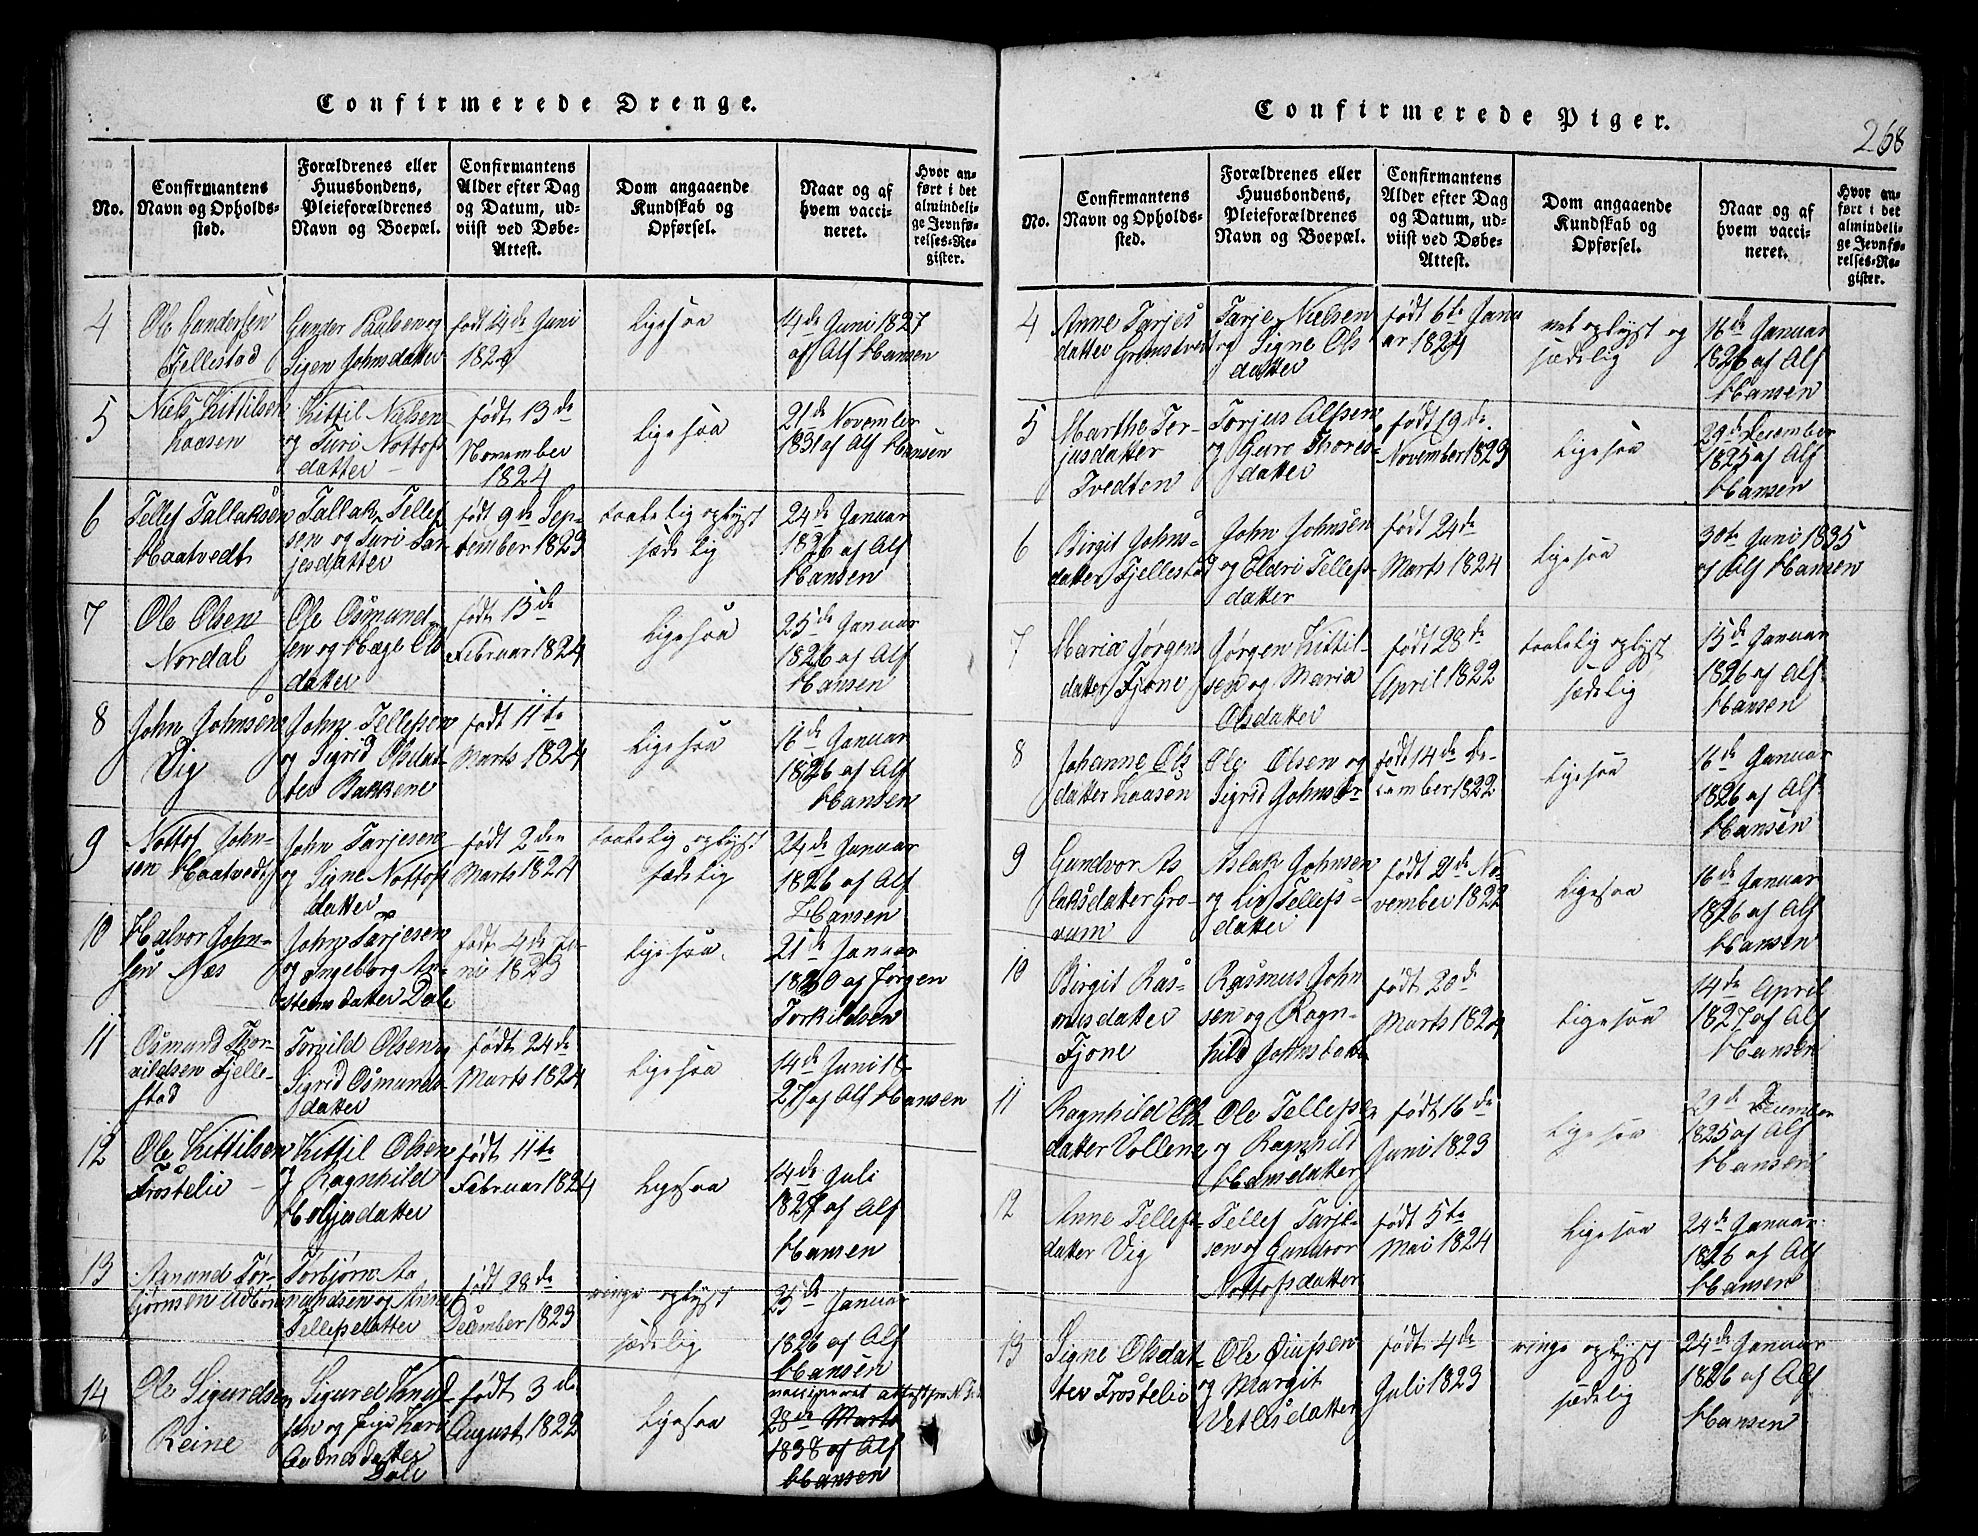 Confirmerede Drenge.
No.
Confirmantens
Navn og Opholds-
sted.
Forældrenes eller
Huusbondens,
Pleieforældrenes
Navn og Boepæl.
Confirmantens
Alder efter Dag
og Datum, ud-
viist ved Døbe-
Attest.
Dom angaaende
Kundskab og
Opførsel.
Naar og af
hvem vacci-
neret.
Hvor an-
ført i det
almindeli-
ge Jevnfø-
relses-Re-
gister.
4
Ole Gundersen
Fjellestad
Gunder Paulsen og
Sigen Johnsdatter
født 4de Juni
1824
Ligesaa
14de Juni 1827
af Alf Hansen
5
Niels Kittilsen
Laasen
Kittil Nielsen
og Turi Nottofs
datter
født 13de
November
1824
Ligesaa
21de November
1831 af Alf Hansen
6
Tellef Tallaksen
Haatvedt
Tallak Tellef
sen og Turi Tar
jesdatter
født 9de Sep-
tember 1823
taatelig oplyst
sædelig
24de Januar
1826 af Alf
Hansen
7
Ole Olsen
Nordal
Ole Osmund
sen og Hæge Ols
datter
født 15de
Februar 1824
Ligesaa
25de Januar
1826 af Alf
Hansen
8
John Johnsen
Vig
John Tellefsen
og Sigrid Olsdat-
ter Bakkene
født 11te
Marts 1824
Ligesaa
16de Januar
1826 af Alf
Hansen
9
Nottof John-
sen Haatvedt
John Tarjesen
og Signe Nottofs
datter
født 2den
Marts 1824
taatelig oplyst
sædelig
24de Januar
1826 af Alf
Hansen
10
Halvor John-
sen Næs
John Tarjesen
og Ingeborg An-
stensdatter Dale
født 4de Ju-
ni 1823
Ligesaa.
21de Januar
af Jørgen
Torkildsen
11
Osmund Thor-
vildsen Fjelle-
stad
Torvild Olsen og
Sigrid Osmunds-
datter
født 24de
Marts 1824
Ligesaa
14de Juni 18-
27 af Alf Hansen
12
Ole Kittilsen
Frostelie
Kittil Olsen
og Ragnhild
datter
født 11te
Februar 1824
Ligesaa
14de Juli
1827 af Alf
Hansen
13
Aanund Tor-
bjørnsen Udbøen
Torbjørn Aa
nundsen og Anne
Tellefsdatter
født 28de
December 1823
ringe oplyst
sædelig
25de Januar
1826 af Alf
Hansen
14
Ole Sigurdsen
Reine
Sigurd Knud
sen og Kari
datter
Dale
født 3de
August 1822
Ligesaa
vaccineret attest
28de Marts
1838 af Alf
Hansen
Confirmerede Piger.
268
No.
Confirmantens
Navn og Opholds-
sted.
Forældrenes eller
Huusbondens,
Pleieforældrenes
Navn og Boepæl.
Confirmantens
Alder efter Dag
og Datum, ud-
viist ved Døbe-
Attest.
Dom angaaende
Kundskab og
Opførsel.
Naar og af
hvem vacci-
neret.
Hvor an-
ført i det
almindeli-
ge Jevnfø-
relses-Re-
gister.
4
Anne Tarjes
datter Grimstvedt
Tarje Nielsen
og Signe Ols
datter
født 6te Janu
ar 1824
vel oplyst og
sædelig
16de Januar
1826 af Alf
Hansen
5
Marthe Tor-
jusdatter
Tvedten
Torjus Alfsen
og Guro Thores-
datter
født 19de
November 1823
Ligesaa
29de December
1825 af Alf
Hansen
6
Birgit Johns-
datter Fjellestad
John Johnsen
og Eldri Tellefs-
datter
født 24de
Marts 1824
Ligesaa
30te Juni 1835
af Alf Hansen
7
Maria Jørgens
datter Fjone
Jørgen Kittil-
sen og Maria
Olsdatter
født 28de
April 1822
taatelig oplyst
sædelig
15de Januar
1826 af Alf
Hansen
8
Johanne Ols
datter Laasen
Ole Olsen og
Sigrid Johnsdr
født 14de De-
cember 1822
Ligesaa
16de Januar
1826 af Alf
Hansen
9
Gundvor As
laksdatter Gro-
vum
Aslak Johnsen
og Liv Tellefs-
datter
født 21de No-
vember 1822
Ligesaa
16de Januar
1826 af Alf
Hansen
10
Birgit Ras-
musdatter
Fjone
Rasmus John
sen og Ragn-
hild Johnsdatter
født 20de
Marts 1824
Ligesaa
14de April
1827 af Alf
Hansen
11
Ragnhild Ols-
datter Vollene
Ole Tellefsen
og Ragnhild
Hansdatter
født 16de
Juni 1823
Ligesaa
29de December
1825 af Alf
Hansen
12
Anne Tellefs-
datter Vig
Tellef Tarje-
sen og Gundvor
Nottofsdatter
født 5te
Mai 1824
Ligesaa
24de Januar
1826 af Alf
Hansen
13
Signe Olsdat-
ter Frostelie
Ole
og Margit
Vetlesdatter
født 4de
Juli 1823
ringe oplyst
sædelig
24de Januar
1826 af Alf
Hansen